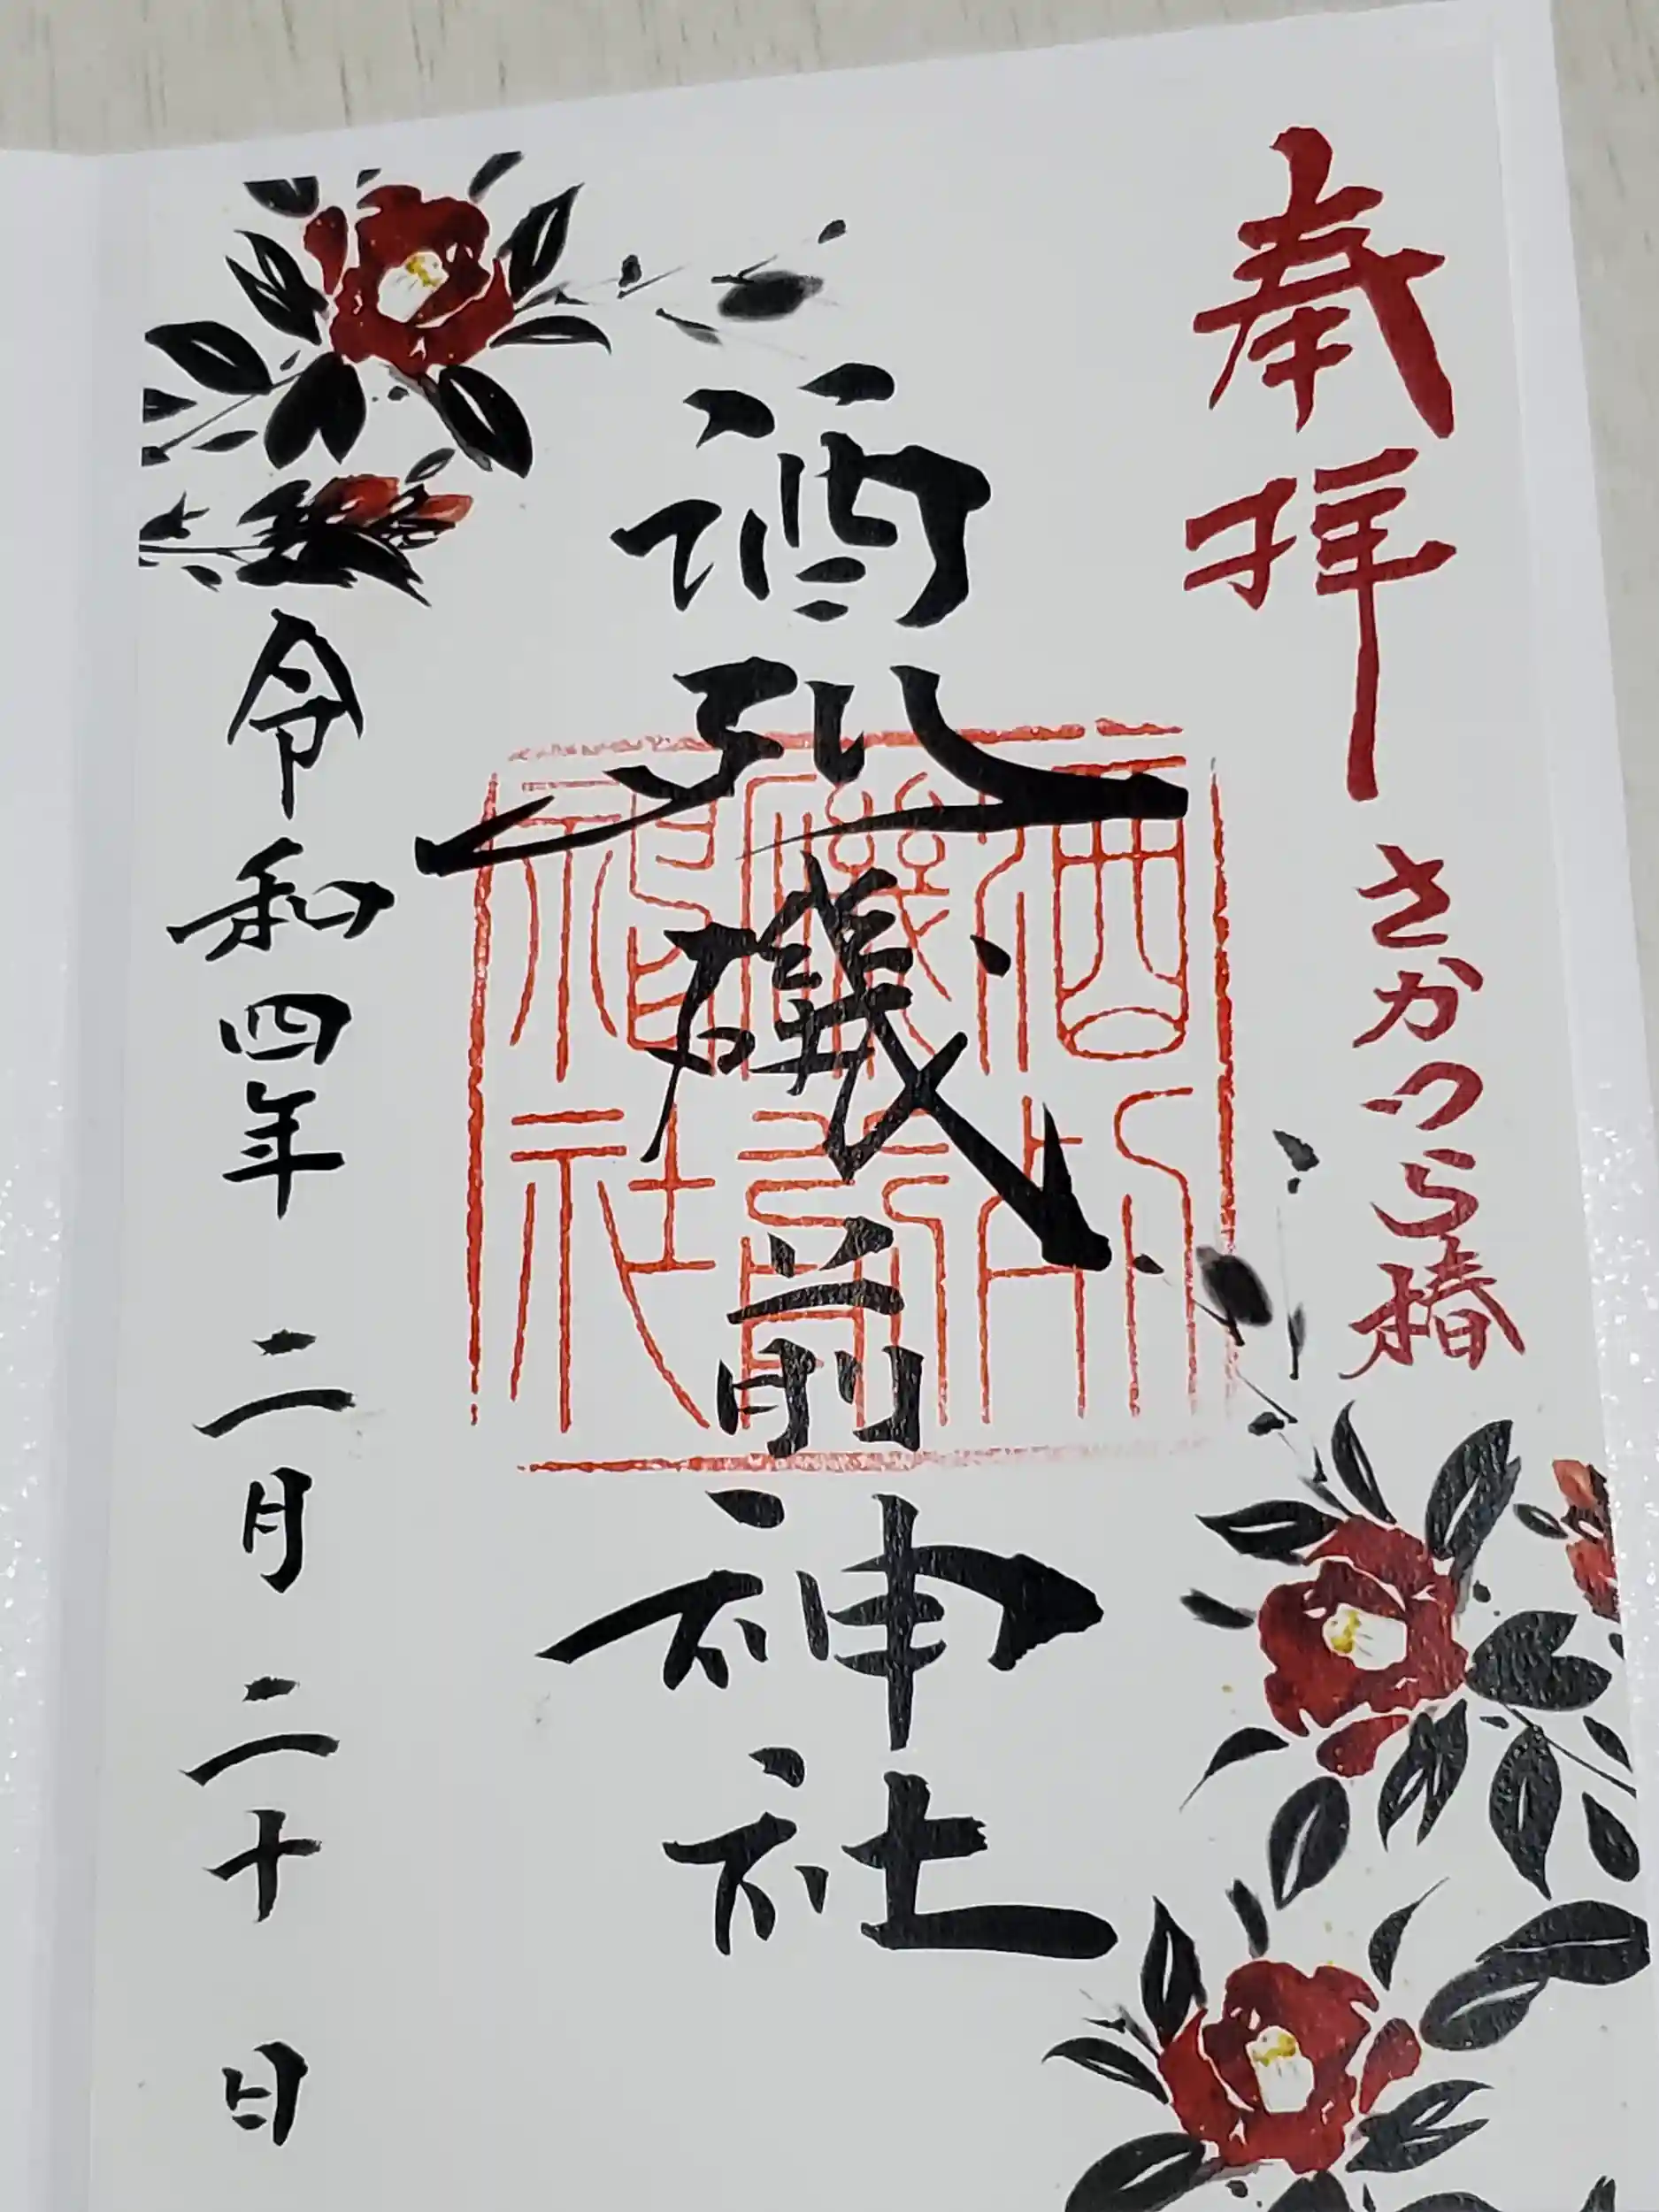 奉拝
さかつら椿
酒列磯前神社
酒列
磯前
神社
令和四年 二月 二十 日